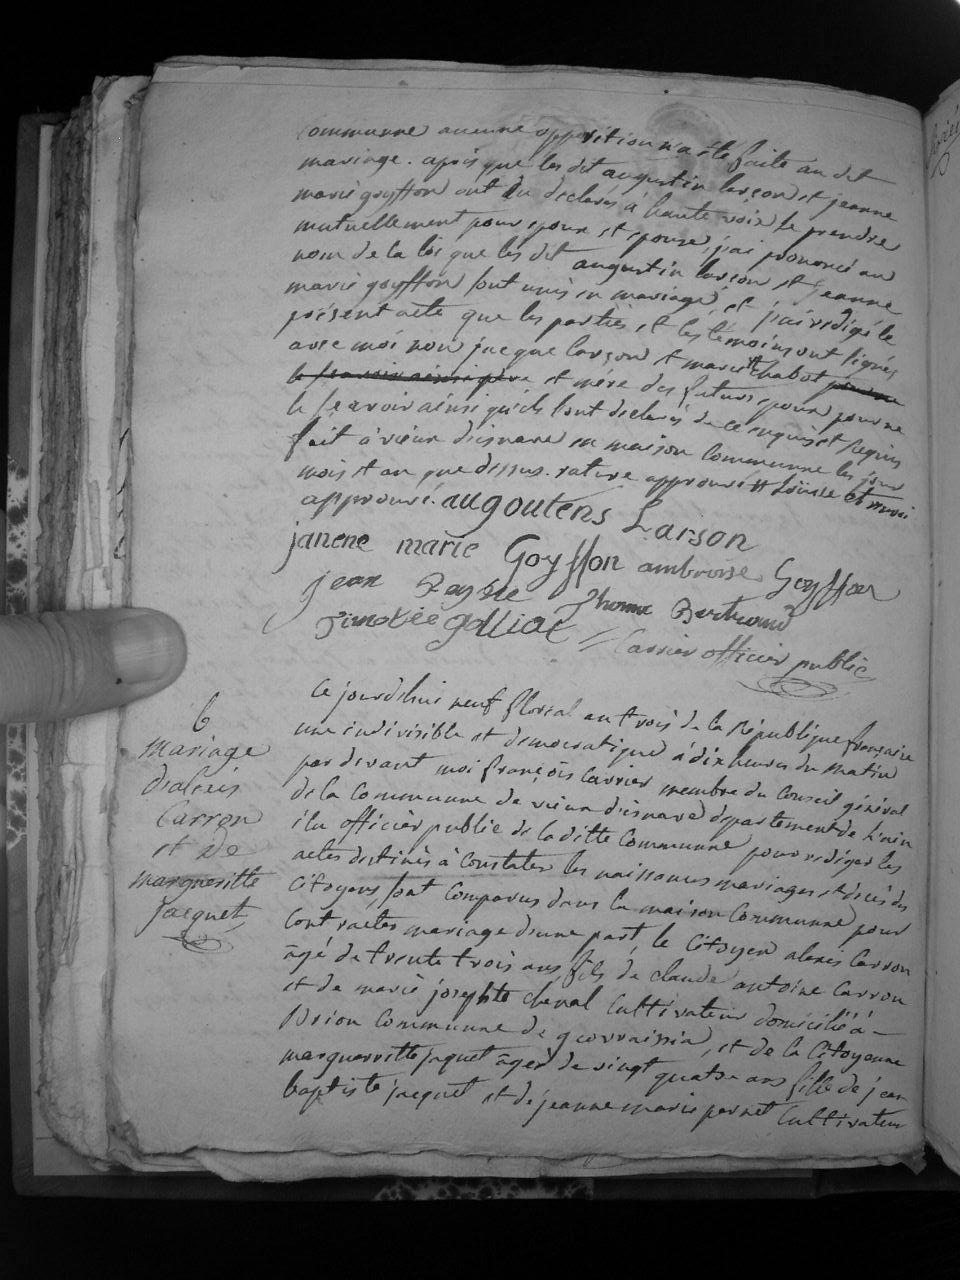 communne aucune opposition n'a été faite au dit
mariage. après que les dit augustin larçon et jeanne
marie goyffon ont eu déclarés à haute voix se prendre
mutuellement pour epoux et epouse, j'ai prononcé au
nom de la loi que les dit augustin larçon et jeanne
marie goyffon sont unis en mariage, et j'ai rédigé le
présent acte que les parties et les témoins ont signés
avec moi non jacque larçon et marie chabot
et mère des futurs epoux pour ne
le scavoir ainsi qu'ils l'ont declarés de ce enquis et requis
fait à vieux disnave en maison communne les jour
mois et an que dessus. rature approuvé
approuvé. augoutens Larson
janene marie Goyffon ambroise Goyffon
jean thome Bertrand
Timotée golliat Carrier officier public
6
Mariage
d'alexis
Carron
et de
margueritte
jacquet
Ce jourd'hui neuf floréal an trois de la République française
une indivisible et démocratique à dix heures du matin
par devant moi françois Carrier membre du Conseil général
de la Communne de vieux disnave département de L'ain
élu officier public de la ditte Communne pour rediger les
actes destinés à Constater les naissances mariages et décès des
Citoyens, sont Comparus dans la maison Communne pour
Contracter mariage d'une part, le Citoyen alexis Carron
âgé de trente trois ans fils de claude antoine Carron
et de marie josephte cheval Cultivateur domicilié à
Brion Communne de , et de la Citoyenne
margueritte jaquet âgée de vingt quatre ans fille de jean
baptiste jacquet et de jeanne marie pernet Cultivateur